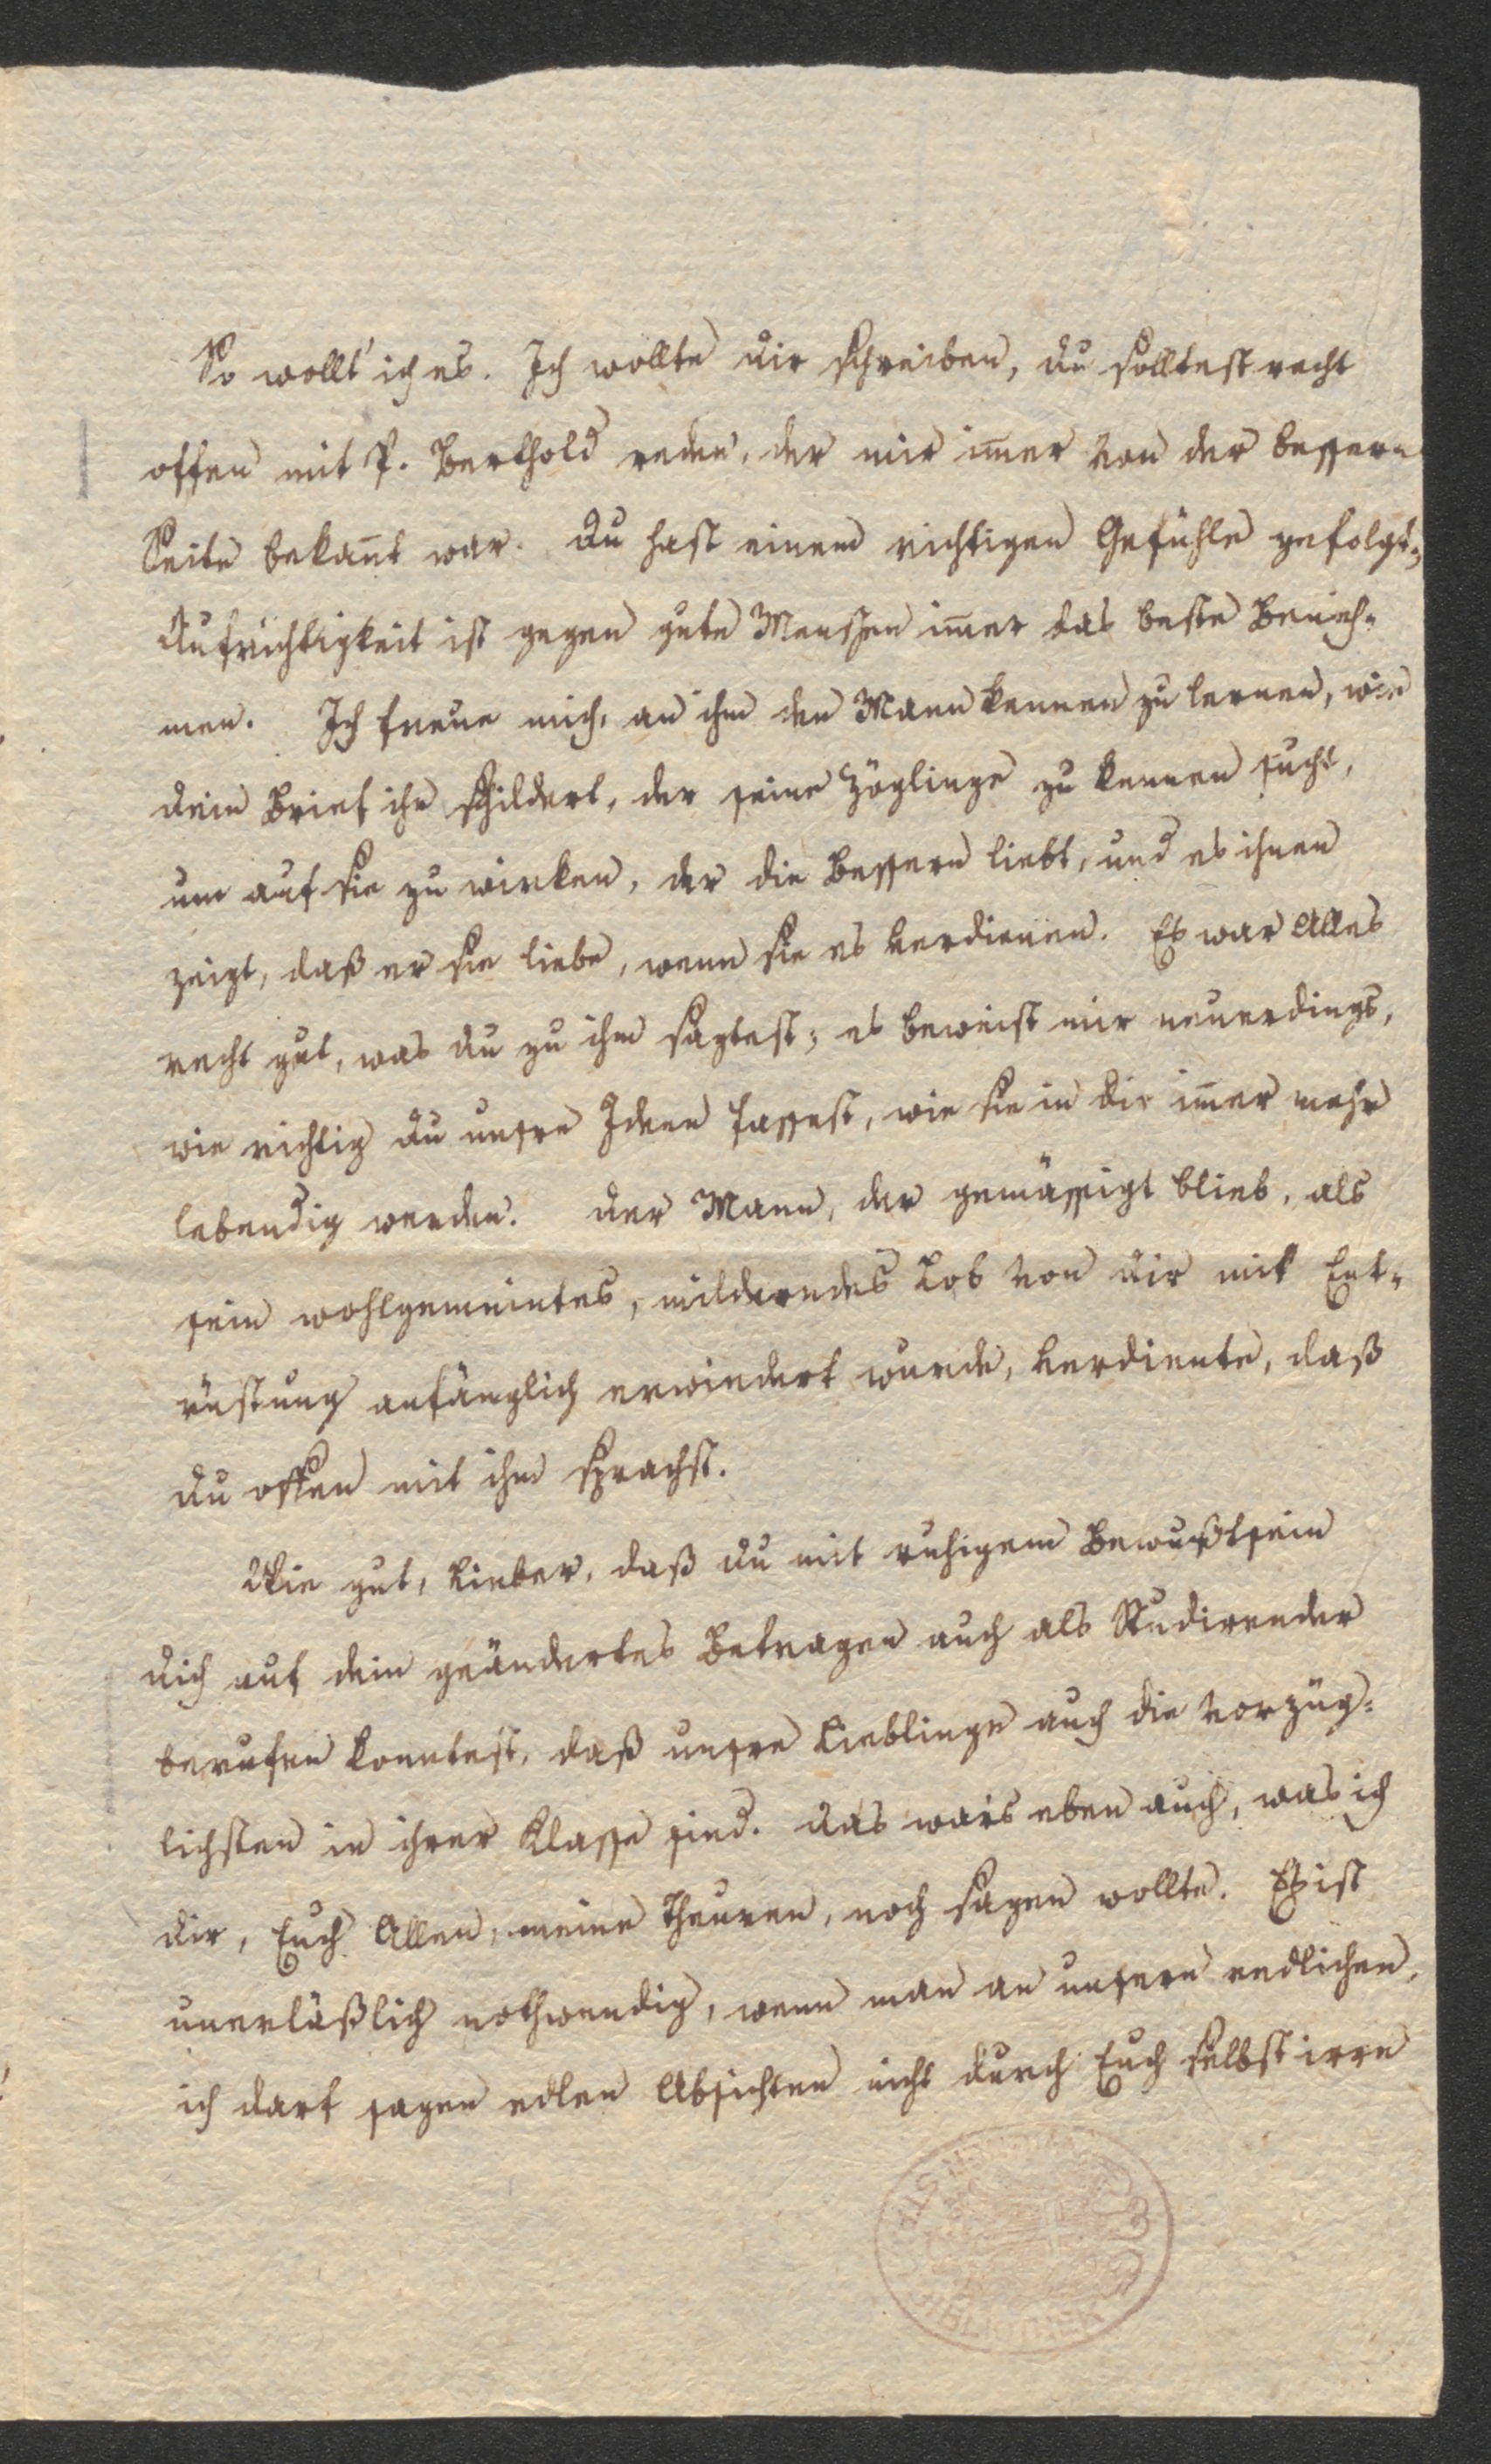 So wollt' ich es. Ich wollte dir schreiben, du solltest recht
offen mit P. Berthold reden, der mir im̄er von der bessern
Seite bekan̄t war. Du hast einem richtigen Gefühle gefolgt;
Aufrichtigkeit ist gegen gute Menschen im̄er das beste Beneh-
men. Ich freue mich, an ihm den Mann kennen zu lernen, wie
dein Brief ihn schildert, der seine Zöglinge zu kennen sucht,
um auf sie zu wirken, der die Bessern liebt, und es ihnen
zeigt, daß er sie liebe, wenn sie es verdienen. Es war Alles
recht gut, was du zu ihm sagtest; es beweist mir neuerdings,
wie richtig du unsre Ideen fassest, wie sie in dir im̄er mehr
lebendig werden. Der Mann, der gemässigt blieb, als
sein wohlgemeintes, milderndes Lob von dir mit Ent-
rüstung anfänglich erwiedert wurde, verdiente, daß
du offen mit ihm sprachst.
Wie gut, Lieber, daß du mit ruhigem Bewußtsein
dich auf dein geändertes Betragen auch als Studirender
berufen konntest, daß unsre Lieblinge auch die vorzüg-
lichsten in ihrer Klasse sind. Das wars eben auch, was ich
dir, Euch Allen, meine Theuren, noch sagen wollte. Es ist
unerläßlich nothwendig, wenn man an unsern redlichen,
ich darf sagen edlen Absichten nicht durch Euch selbst irre
BIBLIOTHEK